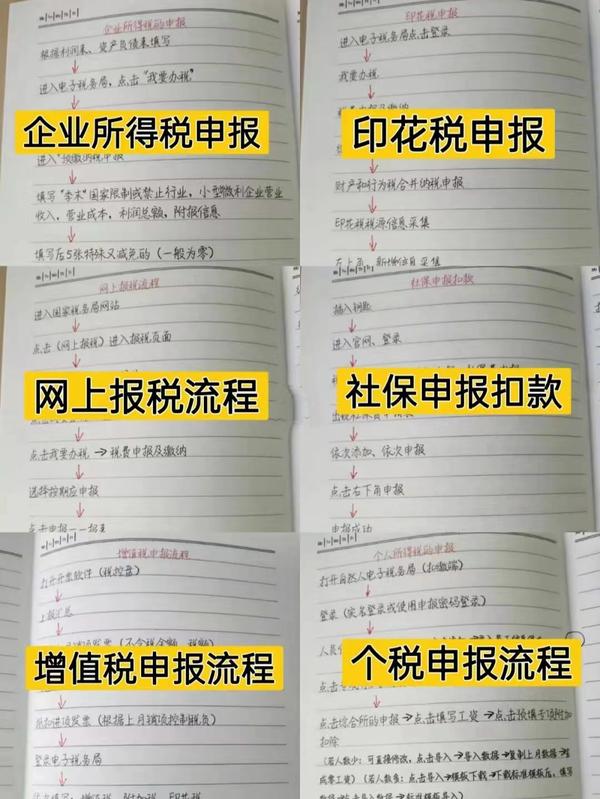 企业所得税的申报
根据利润表、资产负债表填写
进入电子税务局,点击"我要办税"
企业所得税申报
进入"预缴纳税申报"
填写"季末"国家限制或禁止行业,小型微利企业营业
收入,营业成本,利润总额,附报信息
填写后5张特殊又减免的(一般为零)
印花税申报
进入电子税务局点击登录
我要办税
印花税申报
财产和行为税合并纳税申报
印花税税源信息采集
网上报税流程
进入国家税务局网站
点击(网上报税)进入报税页面
网上报税流程
点击我要办税→税费申报及缴纳
选择按期应申报
社保申报扣款
插入钥匙
进入官网、登录
社保申报扣款
依次添加、依次申报
点击右下角申报
申报成功
增值税申报流程
打开开票软件(税控盘)
上报汇总
增值税申报流程
抵扣进项发票(根据上月销项控制税负)
登录电子税务局
个人所得税的申报
打开自然人电子税务局(扣缴端)
登录(实名登录或使用申报密码登录)
个税申报流程
点击综合所的申报→点击填写工资→点击预填专项附加
扣除
(若人数少:可直接修改,点击导入→导入数据→复制上月数据→生
成零工资)(若人数多:点击导入→模板下载→下载标准模板后,填写